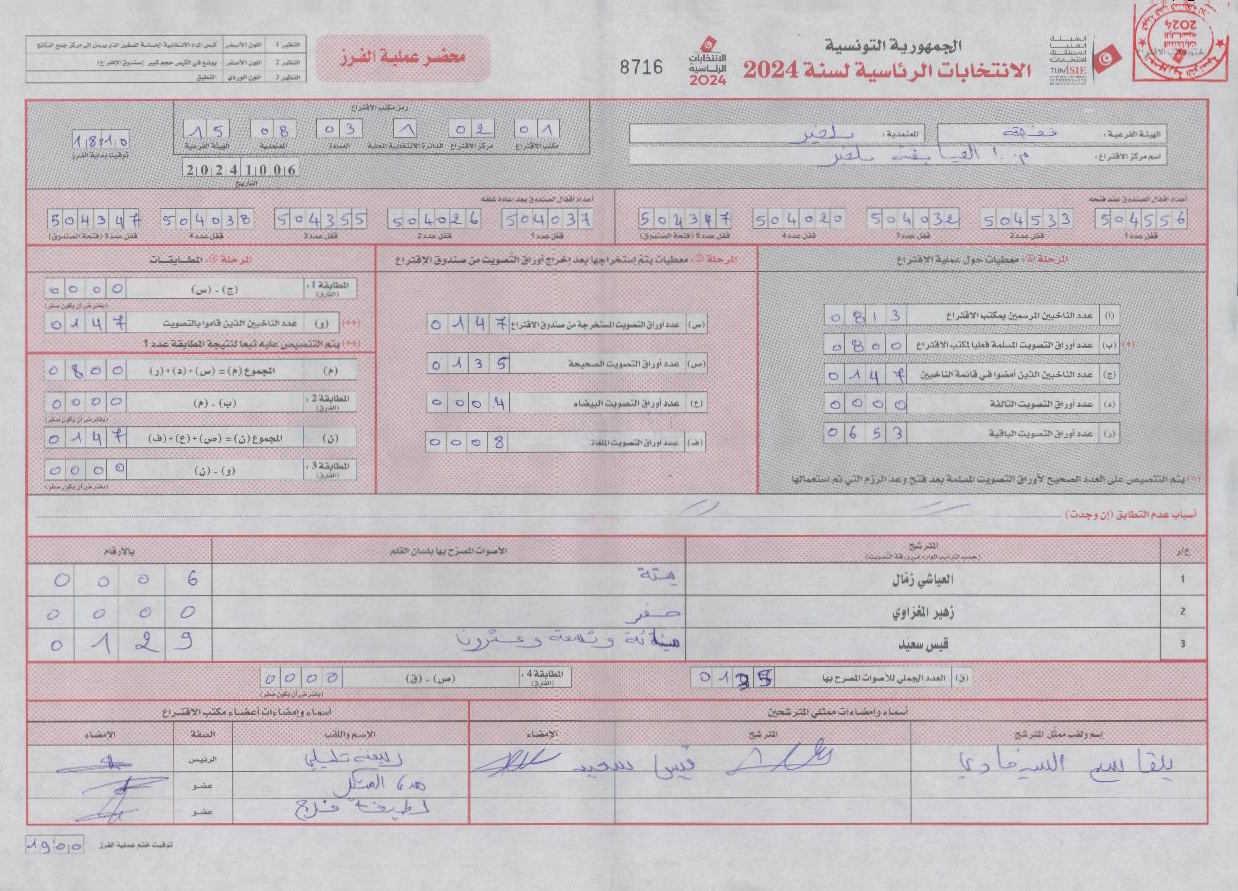 الجمهورية التونسية
الانتخابات الرئاسية لسنة 2024
الانتخابات الرئاسية 2024
8716
محضر عملية الفرز
النظير 1
النظير 2
النظير 3
الهيئة الفرعية : قفصة
المعتمدية : بلخير
اسم مركز الاقتراع :
رمز مكتب الاقتراع
01 02 1 03 08 15
مكتب الاقتراع مركز الاقتراع الدائرة الانتخابية المحلية العمادة المعتمدية الهيئة الفرعية
20241006
التاريخ
1810
توقيت بداية الفرز
أعداد أقفال الصندوق عند فتحه
504556 504533 504032 504020 504347
قفل عدد 1 قفل عدد 2 قفل عدد 3 قفل عدد 4 قفل عدد 5 (فتحة الصندوق)
أعداد أقفال الصندوق بعد إعادة غلقه
504037 504026 504355 504038 504347
قفل عدد 1 قفل عدد 2 قفل عدد 3 قفل عدد 4 قفل عدد 5 (فتحة الصندوق)
معطيات حول عملية الاقتراع
(أ) عدد الناخبين المرسمين بمكتب الاقتراع 0813
(ب) عدد أوراق التصويت المسلمة فعليا لمكتب الاقتراع 0800
(ج) عدد الناخبين الذين أمضوا في قائمة الناخبين 0147
(د) عدد أوراق التصويت التالفة 0000
(ر) عدد أوراق التصويت الباقية 0653
(*) يتم التنصيص على العدد الصحيح لأوراق التصويت المسلمة بعد فتح وعد الرزم التي تم استعمالها
معطيات يتم إستخراجها بعد إخراج أوراق التصويت من صندوق الإقتراع
(س) عدد أوراق التصويت المستخرجة من صندوق الاقتراع 0147
(ص) عدد أوراق التصويت الصحيحة 0135
(ع) عدد أوراق التصويت البيضاء 0004
(ف) عدد أوراق التصويت الملغاة 0008
المطابقات
المطابقة 1 : (الفارق) (ج) - (س) 0000
(يفترض أن يكون صفر)
(**) (و) عدد الناخبين الذين قاموا بالتصويت 0147
(**) يتم التنصيص عليه تبعا لنتيجة المطابقة عدد 1
(م) المجموع (م) = (س)+(د)+(ر) 0800
المطابقة 2 : (الفارق) (ب) - (م) 0000
(يفترض أن يكون صفر)
(ن) المجموع (ن) = (ص)+(ع)+(ف) 0147
المطابقة 3 : (الفارق) (و) - (ن) 0000
(يفترض أن يكون صفر)
أسباب عدم التطابق (إن وجدت)
ع/ر المترشح الأصوات المصرح بها بلسان القلم بالأرقام
(حسب الترتيب الوارد في ورقة التصويت)
1 العياشي زمّال ستة 0006
2 زهير المغزاوي صفر 0000
3 قيس سعيد مائة وتسعة وعشرون 0129
(ق) العدد الجملي للأصوات المصرح بها 0135
المطابقة 4 : (الفارق) (ص) - (ق) 0000
(يفترض أن يكون صفر)
أسماء وإمضاءات ممثلي المترشحين
إسم ولقب ممثل المترشح المترشح الإمضاء
بلقاسم قيس سعيد
أسماء وإمضاءات أعضاء مكتب الاقتراع
الإسم واللقب الصفة الإمضاء
الرئيس
عضو
لطيفة فرج عضو
توقيت ختم عملية الفرز 1900